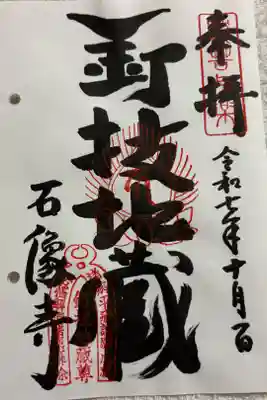 奉拝
令和七年十月一日
釘抜地蔵
石像寺